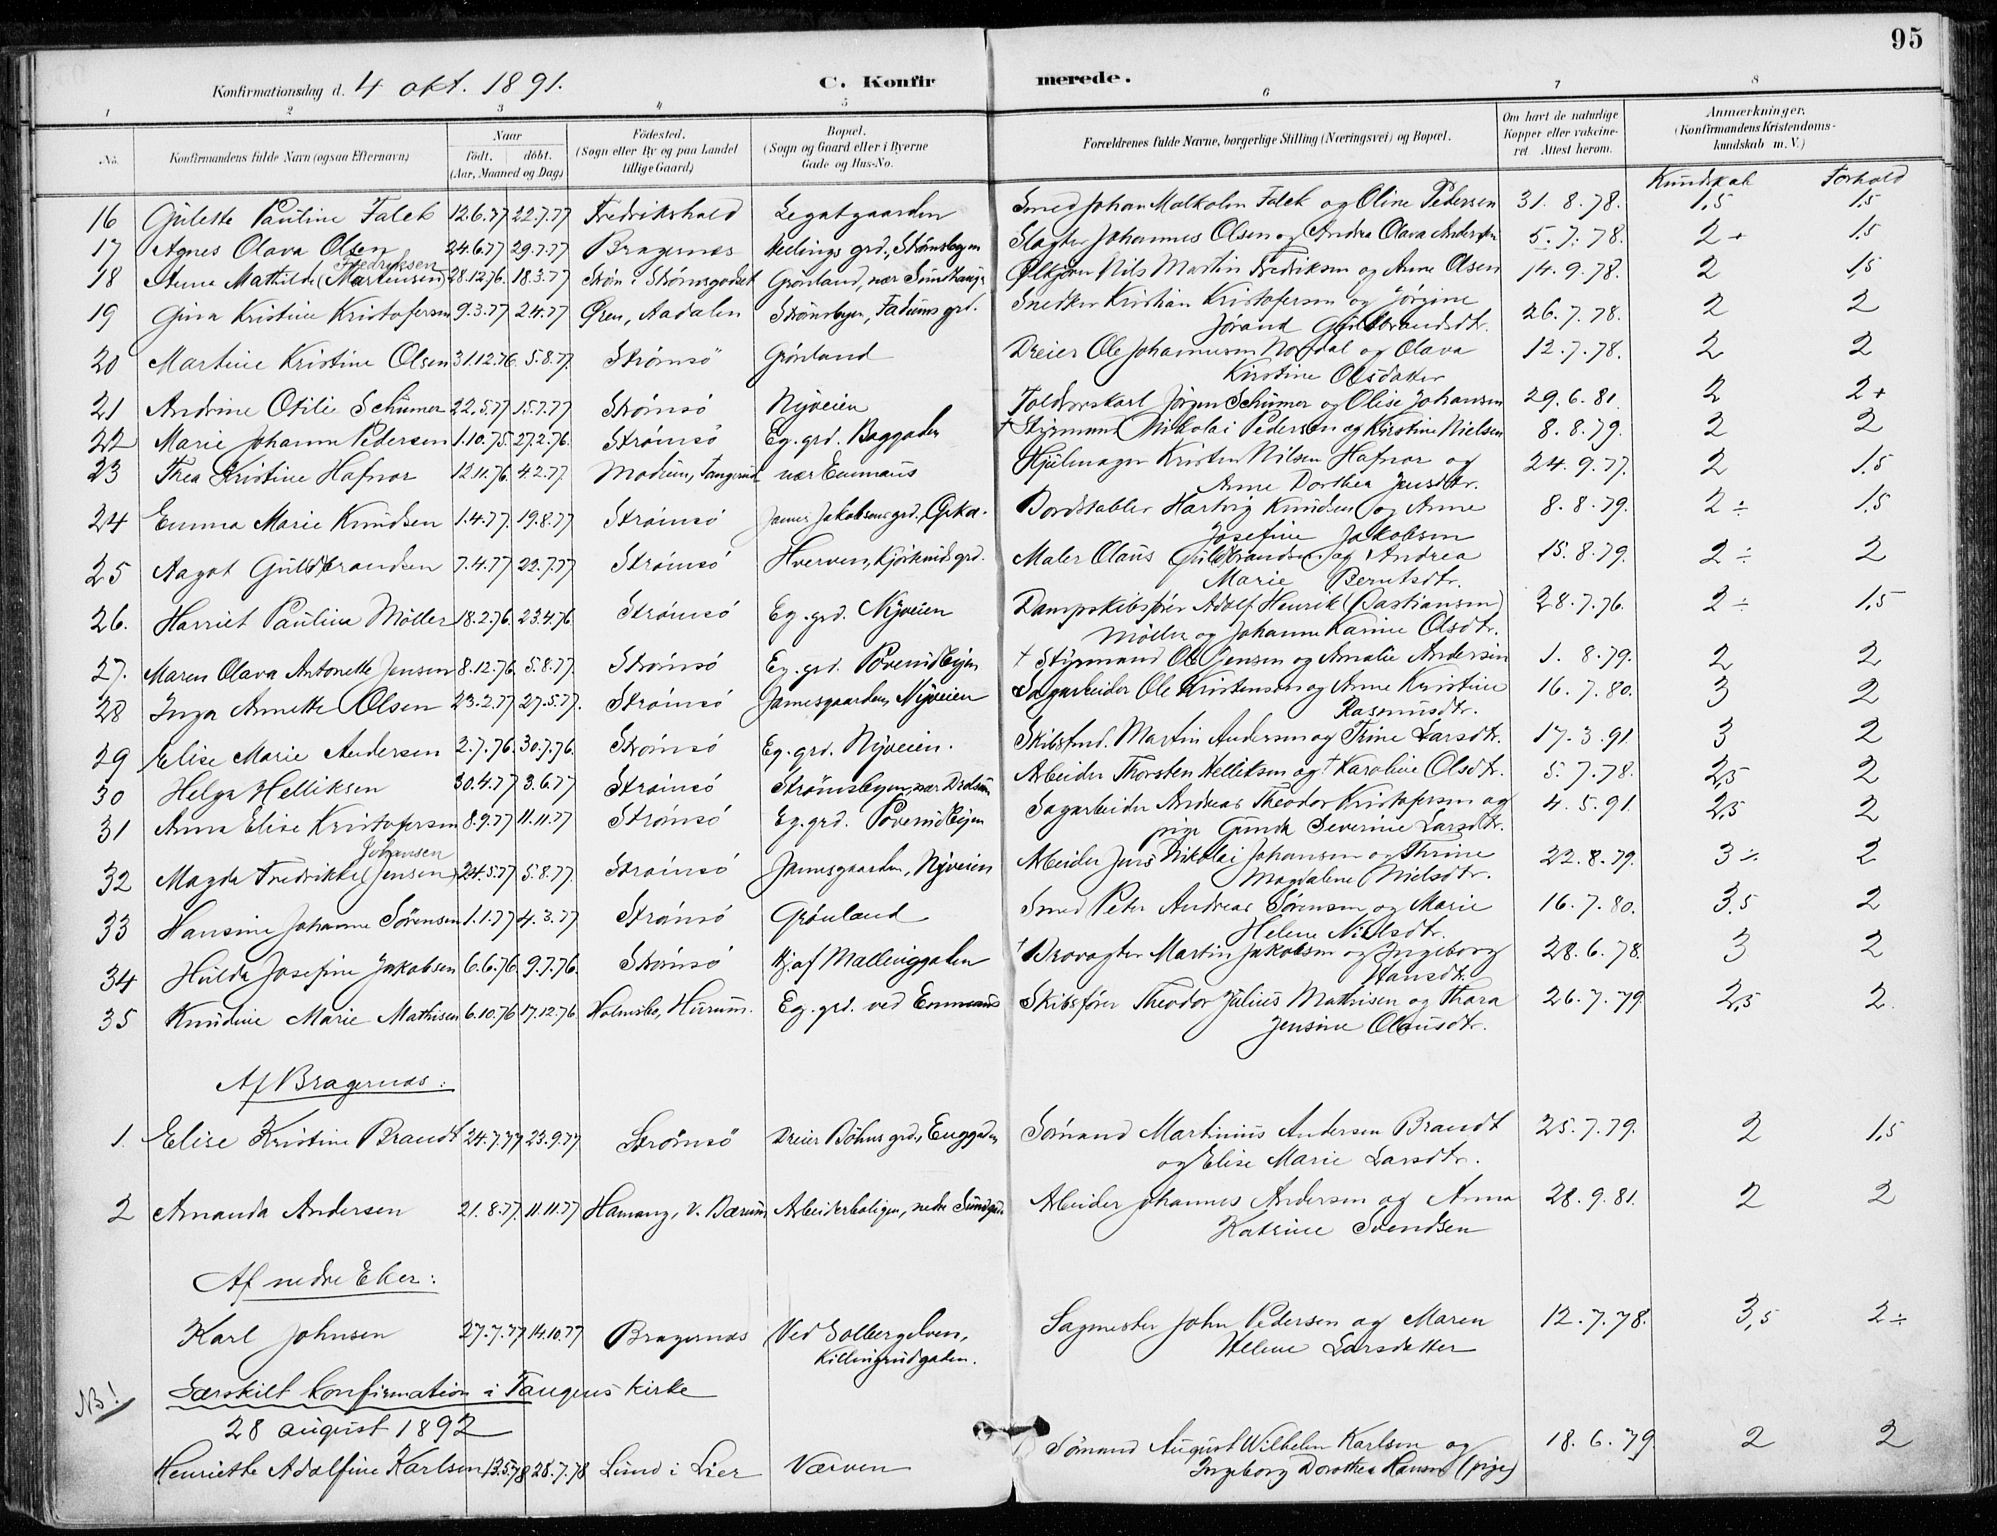 95
Konfirmationsdag d. 4 okt. 1891.
C. Konfir merede.
1 2 3 4 5 6 7 8
No. Konfirmandens fulde Navn (ogsaa Efternavn) Naar födt. döbt. (Aar, Maaned og Dag) Födested. (Sogn eller By og paa Landet tillige Gaard) Bopæl. (Sogn og Gaard eller i Byerne Gade og Hus-No. Forældrenes fulde Navne, borgerlige Stilling (Næringsvei) og Bopæl. Om havt de naturlige Kopper eller vaccineret. Attest herom. Anmærkninger. (Konfirmandens Kristendomskundskab m. V.)
Kundskab Forhold
16 Gulette Pauline Falek 12.6.77 22.7.77 Fredrikshald Legatgaarden Smed Johan Malkolm Falek og Oline Pedersen 31.8.78. 1,5 1,5
17 Agnes Olava Olsen 24.6.77 29.7.77 Bragernæs grd., Strømsbyen Slagter Johannes Olsen og Andrea Olava Andersen 5.7.78. 2+ 1,5
Fredriksen
18 Anna Mathilde (Martinsen) 28.12.76. 18.3.77 Strøm i Strømsgodset Grønland, nær Sundhauge Ølkjører Nils Martin Fredriksen og Anne Olsen 14.9.78. 2 1,5
19 Gina Kristine Kristofersen 9.3.77 2.4.77 Øren, Aadalen Strømsbyen, Fadums grd. Snedker Kristian Kristofersen og Jørgine
Jórand Guldbrandsdtr. 26.7.78. 2 2
20 Martine Kristine Olsen 31.12.76. 5.8.77. Strømsö Grønland Dreier Ole Johannesen Nordal og Olava
Kirstine Olsdatter 12.7.78. 2 2
21 Andrine Otilie Schumer 22.5.77 15.7.77 Strómsó Nyveien Toldorskarl Jörgen Schumer og Olise Johansen 29.6.81. 2 2+
22 Marie Johanna Pedersen 1.10.75 27.2.76. Strómsó Eg. grd. Baggaden † Styrmand Nikolai Pedersen og Kirstine Nielsen 8.8.79. 2 2
23 Thea Kristine Hafnor 12.11.76. 4.2.77. Modum, nær Emmaus Hjulmager Kristen Nilsen Hafnor og
Anne Dorthea Jensdtr. 24.9.77. 2 1,5
24 Emma Marie Knudsen 1.4.77. 19.8.77 Strómsó James Jakobsens grd., Bordstabler Hartvig Knudsen og Anne
Josefine Jakobsen 8.8.79. 2÷ 1,5
25 Aagot Guldbrandsen 7.4.77 22.7.77 Strómsó Hverven, grd. Maler Olaus Guldbrandsen og Andrea
Marie Berntsdtr. 15.8.79. 2÷ 2
26. Harriet Pauline Möller 18.2.76. 23.4.76. Strómsó Eg. grd. Nyveien Dampskibsfører Adolf Henrik (Bastiansen)
Möller og Johanne Karine Olsdtr. 28.7.76. 2÷ 1,5
27. Maren Olava Antonette Jensen 8.12.76. 5.8.77. Strómsó Eg. grd. † Styrmand Ole Jensen og Amalie Andersen 1.8.79. 2 2
28 Inga Annette Olsen 23.2.77 27.5.77. Strómsó Jamesgaarden, Nyveien Sagarbeider Ole Kristensen og Anne Kristine
Rasmusdtr. 16.7.80. 3 2
29 Elise Marie Andersen 2.7.76. 30.7.76. Strómsó Eg. grd. Nyveien. Skibsfmd. Martin Andersen og Trine Larsdtr. 17.3.91. 3 2
30 Helga Helliksen 30.4.77 3.6.77 Strómsó Strømsbyen, nær Arbeider Thorsten Helliksen og † Karoline Olsdtr. 5.7.78. 2,5 2
31 Anna Elise Kristofersen 8.9.77 11.11.77 Strómsó Eg. grd. Sagarbeider Andreas Theodor Kristofersen og
pige Gunda Severine Larsdtr. 4.5.91. 2,5 2
Johansen
32 Magda Fredrikke (Jensen) 24.5.77 5.8.77. Strómsó Jamesgaarden, Nyveien Arbeider Jens Nikolai Johansen og Thrine
Magdalene Nielsdtr. 22.8.79. 3÷ 2
33 Hansine Johanne Sörensen 1.1.77 4.3.77 Strómsó Grónland Smed Peter Andreas Sørensen og Marie
Helene Nielsdtr. 16.7.80. 3,5 2
34 Hulda Josefine Jakobsen 6.6.76 9.7.76. Strómsó Hj. af Mallinggaden † Brovagter Martin Jakobsen og Ingeborg
Hansdtr. 28.6.78. 3 2
35 Knudine Marie Mathisen 6.10.76 17.12.76. Holmsbo, Hurum. Eg. grd. ved Emmaus Skibsfører Theodor Julius Mathisen og Thora
Jensine Olausdtr. 26.7.79 2,5 2.
Af Bragernæs:
1. Elise Kristine Brandt 24.7.77 23.9.77 Strømsö Dreier Böhns grd., Enggaden Sømand Martinius Andersen Brandt
og Elise Marie Larsdtr. 25.7.79. 2 1,5
2 Amanda Andersen 21.8.77. 11.11.77 Hamang, V. Bærum Arbeiderboligen, nedre Sundgade Arbeider Johannes Andersen og Anna
Katrine Svendsen 28.9.81. 2 2
Af nedre Eker:
Karl Johnsen 27.7.77 14.10.77 Bragernæs Ved Solbergelven,
Killingrudgaden. Sagmester John Pedersen og Maren
Helene Larsdatter 12.7.78. 3,5 2÷
NB! Særskilt konfirmation i Tangens kirke
28 august 1892
Henriette Adolfine Karlsen 13.5.78 28.7.78 Lund i Lier Værven Sømand August Wilhelm Karlsen og
Ingeborg Dorothea Hansen (pige) 18.6.79 2 2